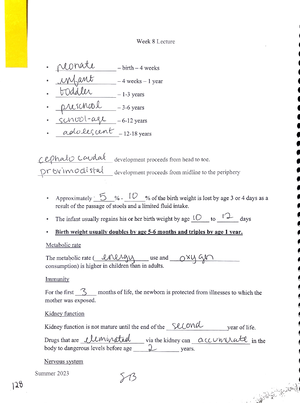 Week 8 Lecture
• neonate – birth – 4 weeks
• infant – 4 weeks – 1 year
• toddler – 1-3 years
• preschool – 3-6 years
• school-age – 6-12 years
• adolescent – 12-18 years
cephalocaudal development proceeds from head to toe.
proximodistal development proceeds from midline to the periphery
• Approximately 5 % - 10 % of the birth weight is lost by age 3 or 4 days as a
result of the passage of stools and a limited fluid intake.
• The infant usually regains his or her birth weight by age 10 to 12 days
• Birth weight usually doubles by age 5-6 months and triples by age 1 year.
Metabolic rate
The metabolic rate ( energy use and oxygen
consumption) is higher in children than in adults.
Immunity
For the first 3 months of life, the newborn is protected from illnesses to which the
mother was exposed.
Kidney function
Kidney function is not mature until the end of the second year of life.
Drugs that are eliminated via the kidney can accumulate in the
body to dangerous levels before age 2 years.
Nervous system
Summer 2023
128